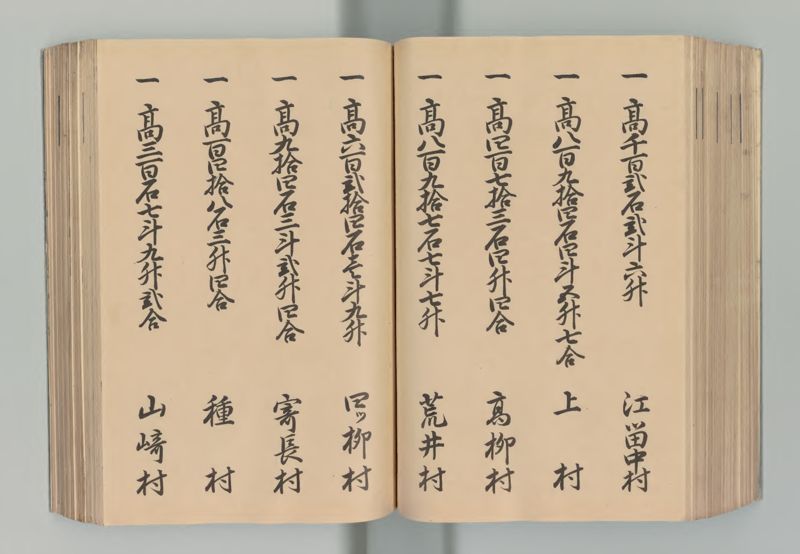 一 高千百弐石弐斗六升 江畄中村
一 高八百九拾四石四斗五升七合 上村
一 高四百七拾三石四升四合 高柳村
一 高八百九拾七石七斗七升 荒井村
一 高六百弐拾四石壱斗九升 四ツ柳村
一 高九拾四石三斗弐升四合 寄長村
一 高百四拾八石三升四合 種村
一 高三百石七斗九升弐合 山﨑村